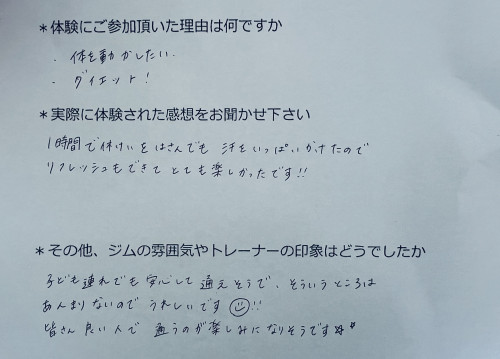 ＊体験にご参加頂いた理由は何ですか
・体を動かしたい。
・ダイエット！
＊実際に体験された感想をお聞かせ下さい
1時間で休けいをはさんでも 汗をいっぱいかけたので
リフレッシュもできて とても楽しかったです!!
＊その他、ジムの雰囲気やトレーナーの印象はどうでしたか
子ども連れでも安心して通えそうで、そういうところは
あんまりないので うれしいです☺!!
皆さん良い人で 通うのが楽しみになりそうです☆〃